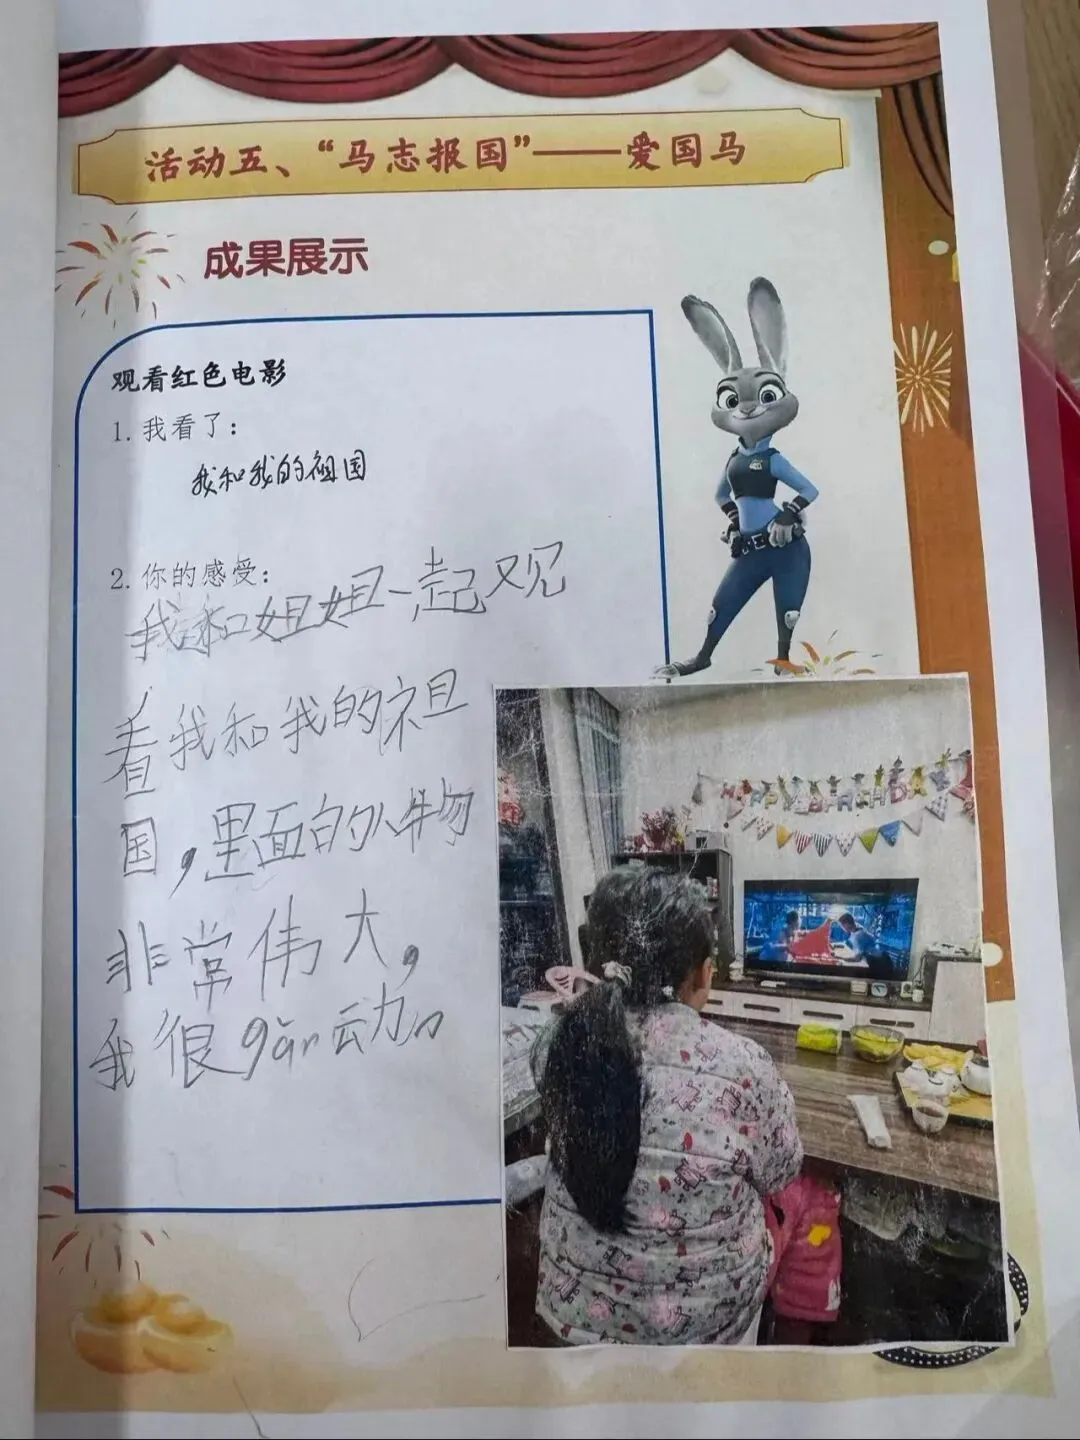 活动五、“马志报国”——爱国马
成果展示
观看红色电影
1. 我看了：
我和我的祖国
2. 你的感受：
我和姐姐一起观
看我和我的祖
国，里面的人物
非常伟大，
我很gǎn动。
HAPPY BIRTHDAY